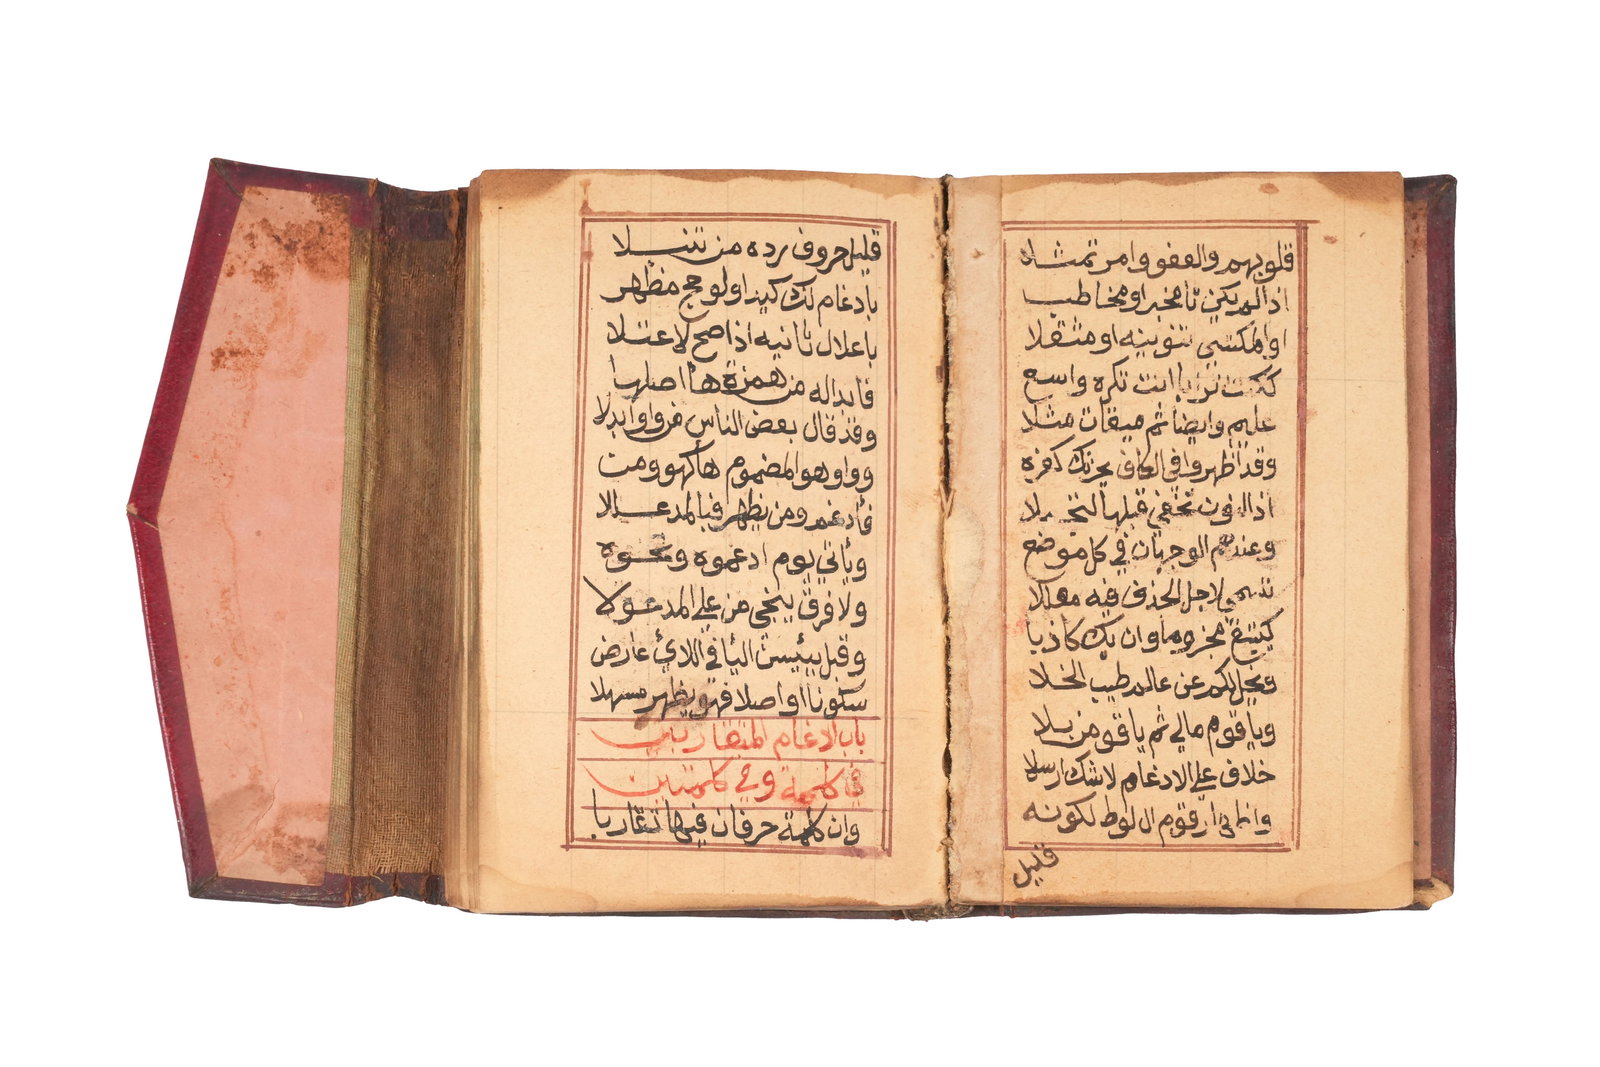 قلوبهم والعفو وامر تمثلا
اذا لم يكن تا مخبر او مخاطب
او المكتسي تنوينه او مثقلا
ككنت ترابا انت تكره واسع
عليم وايضا ثم ميقات مثلا
وقد اظهروا في الكاف يحزنك كفره
اذ النون تخفى قبلها لتجملا
وعندهم الوجهان في كل موضع
تسمى لاجل الحذف فيه معللا
كيبتغ مجزوما وان يك كاذبا
ويخل لكم عن عالم طيب الخلا
ويا قوم مالي ثم يا قوم من بلا
خلاف على الادغام لا شك ارسلا
واظهار قوم ال لوط لكونه
قليل
قليل حروف رده من تنبلا
بادغام لك كيدا ولو حج مظهر
باعلال ثانيه اذا صح لاعتلا
فابداله من همزة هاأ اصلها
وقد قال بعض الناس من واو ابدلا
وواو هو المضموم هاأ كهو ومن
فأدغم ومن يظهر فبالمد عللا
ويأتي يوم ادغموه ونحوه
ولا فرق ينجي من على المد عولا
وقبل يئسن اليأ في اللائ عارض
سكونا او اصلا فهو يظهر مسهلا
باب ادغام المتقاربين
في كلمة وفي كلمتين
وان كلمة حرفان فيها تقاربا